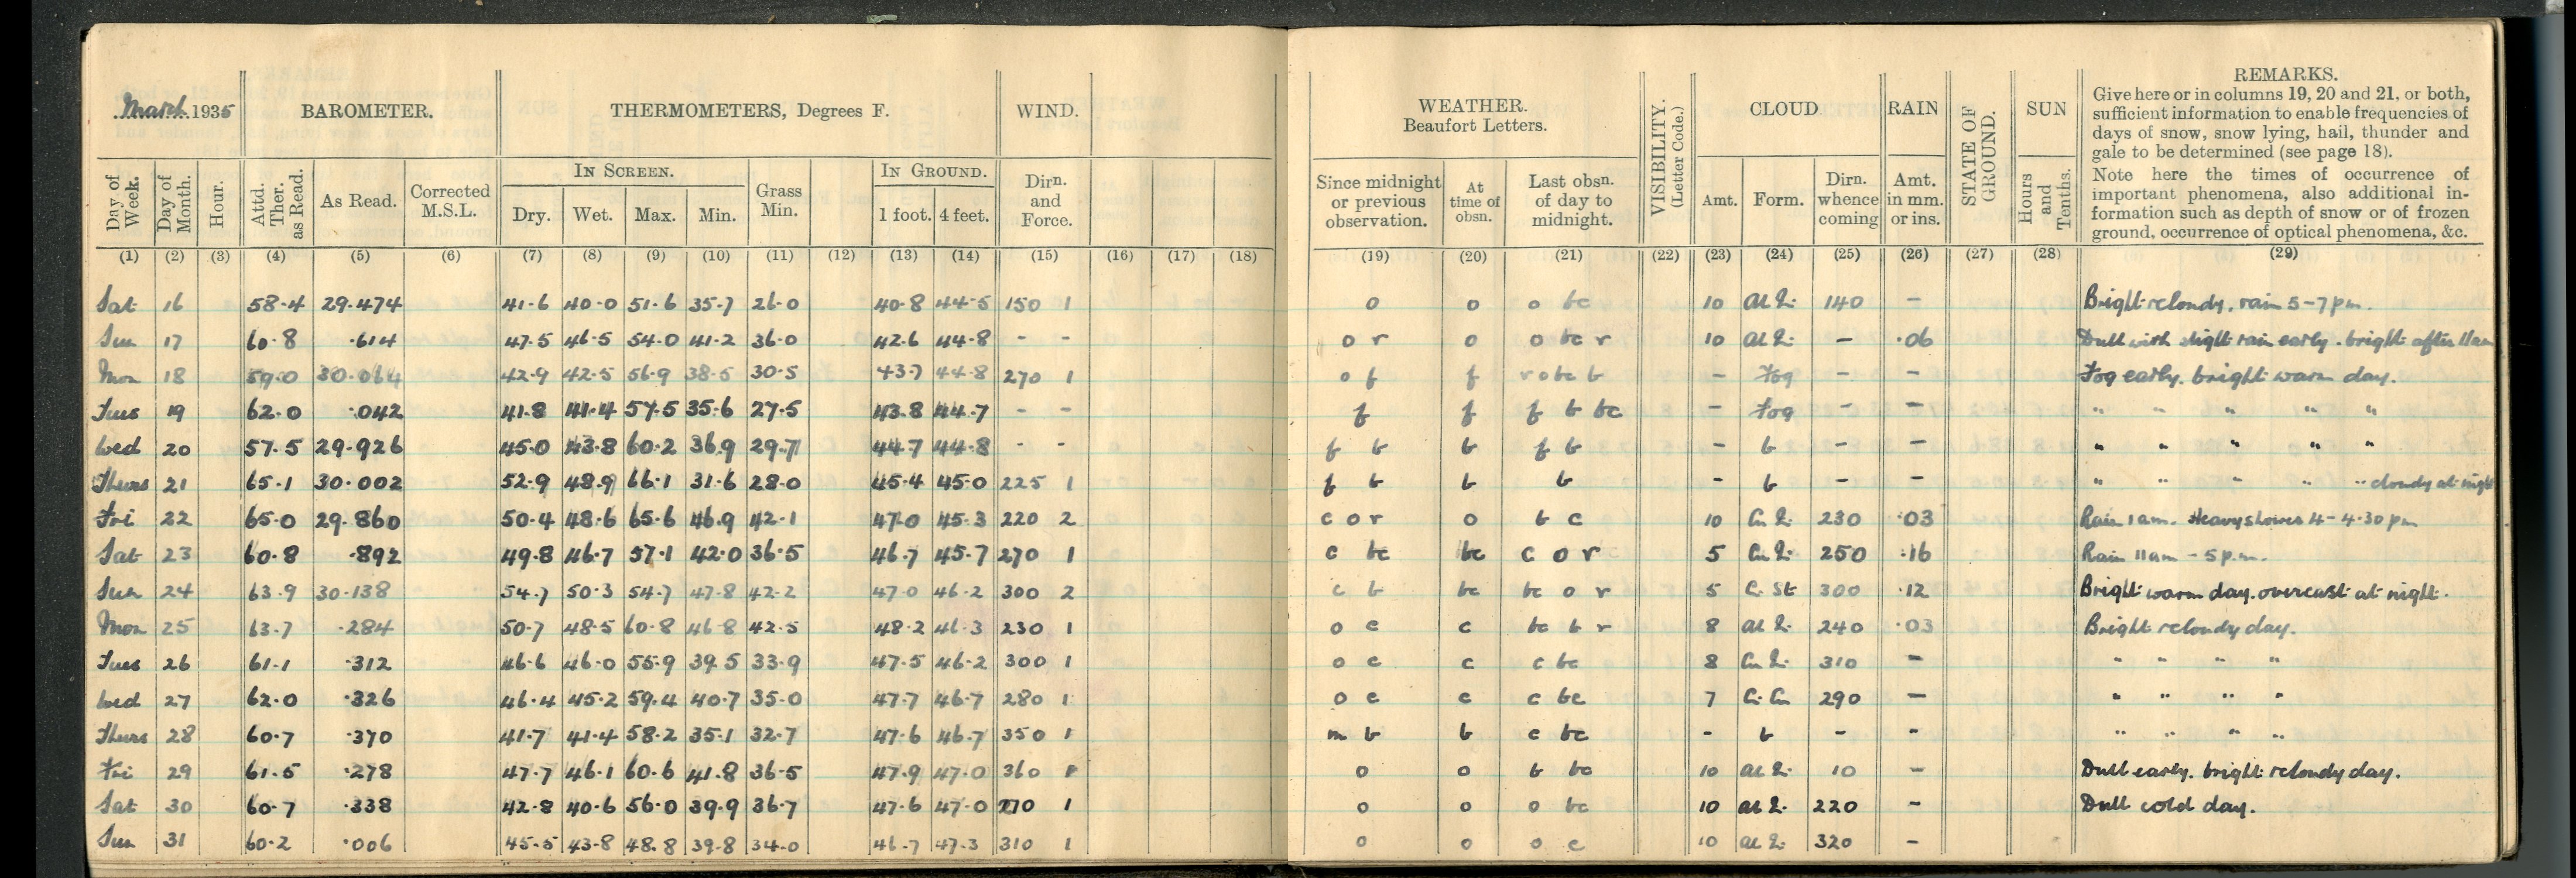 March 1935 BAROMETER. THERMOMETERS, Degrees F. WIND. WEATHER. Beaufort Letters. VISIBILITY. (Letter Code.) CLOUD RAIN STATE OF GROUND. SUN REMARKS.
Give here or in columns 19, 20 and 21, or both,
sufficient information to enable frequencies of
days of snow, snow lying, hail, thunder and
gale to be determined (see page 18).
Note here the times of occurrence of
important phenomena, also additional in-
formation such as depth of snow or of frozen
ground, occurrence of optical phenomena, &c.
IN SCREEN. IN GROUND.
Day of Week. Day of Month. Hour. Attd. Ther. as Read. As Read. Corrected M.S.L. Dry. Wet. Max. Min. Grass Min. 1 foot. 4 feet. Dirn. and Force. Since midnight or previous observation. At time of obsn. Last obsn. of day to midnight. Amt. Form. Dirn. whence coming Amt. in mm. or ins. Hours and Tenths.
(1) (2) (3) (4) (5) (6) (7) (8) (9) (10) (11) (12) (13) (14) (15) (16) (17) (18) (19) (20) (21) (22) (23) (24) (25) (26) (27) (28) (29)
Sat 16 58.4 29.474 41.6 40.0 51.6 35.7 26.0 40.8 44.5 150 1 o o o bc 10 140 - Bright & cloudy, rain 5-7 pm.
Sun 17 60.8 .614 47.5 46.5 54.0 41.2 36.0 42.6 44.8 - - o r o o bc r 10 - .06 Dull with slight rain early. bright after 11am
Mon 18 59.0 30.064 42.9 42.5 56.9 38.5 30.5 43.7 44.8 270 1 o f f r o bc b - Fog - - Fog early. bright warm day.
Tues 19 62.0 .042 41.8 41.4 57.5 35.6 27.5 43.8 44.7 - - f f f b bc - Fog - - " " " " "
Wed 20 57.5 29.926 45.0 43.8 60.2 36.9 29.7 44.7 44.8 - - f b b f b - b - - " " " " "
Thurs 21 65.1 30.002 52.9 48.9 66.1 31.6 28.0 45.4 45.0 225 1 f b b b - b - - " " " " " cloudy at night
Fri 22 65.0 29.860 50.4 48.6 65.6 46.9 42.1 47.0 45.3 220 2 c o r o b c 10 230 .03 Rain 1am. Heavy shower 4-4.30 pm
Sat 23 60.8 .892 49.8 46.7 57.1 42.0 36.5 46.7 45.7 270 1 c bc bc c o r 5 250 .16 Rain 11am - 5 p.m.
Sun 24 63.9 30.138 54.7 50.3 54.7 47.8 42.2 47.0 46.2 300 2 c b bc bc o r 5 C. St 300 .12 Bright warm day. overcast at night.
Mon 25 63.7 .284 50.7 48.5 60.8 46.8 42.5 48.2 46.3 230 1 o c c bc b r 8 240 .03 Bright & cloudy day.
Tues 26 61.1 .312 46.6 46.0 55.9 39.5 33.9 47.5 46.2 300 1 o c c c bc 8 310 - " " " "
Wed 27 62.0 .326 46.4 45.2 59.4 40.7 35.0 47.7 46.7 280 1 o c c c bc 7 Ci. Cu 290 - " " " "
Thurs 28 60.7 .370 41.7 41.4 58.2 35.1 32.7 47.6 46.7 350 1 m b b c bc - b - - " " " "
Fri 29 61.5 .278 47.7 46.1 60.6 41.8 36.5 47.9 47.0 360 1 o o b bc 10 10 - Dull early. bright & cloudy day.
Sat 30 60.7 .338 42.8 40.6 56.0 39.9 36.7 47.6 47.0 1 o o o bc 10 220 - Dull cold day.
Sun 31 60.2 .006 45.5 43.8 48.8 39.8 34.0 46.7 47.3 310 1 o o o c 10 320 -